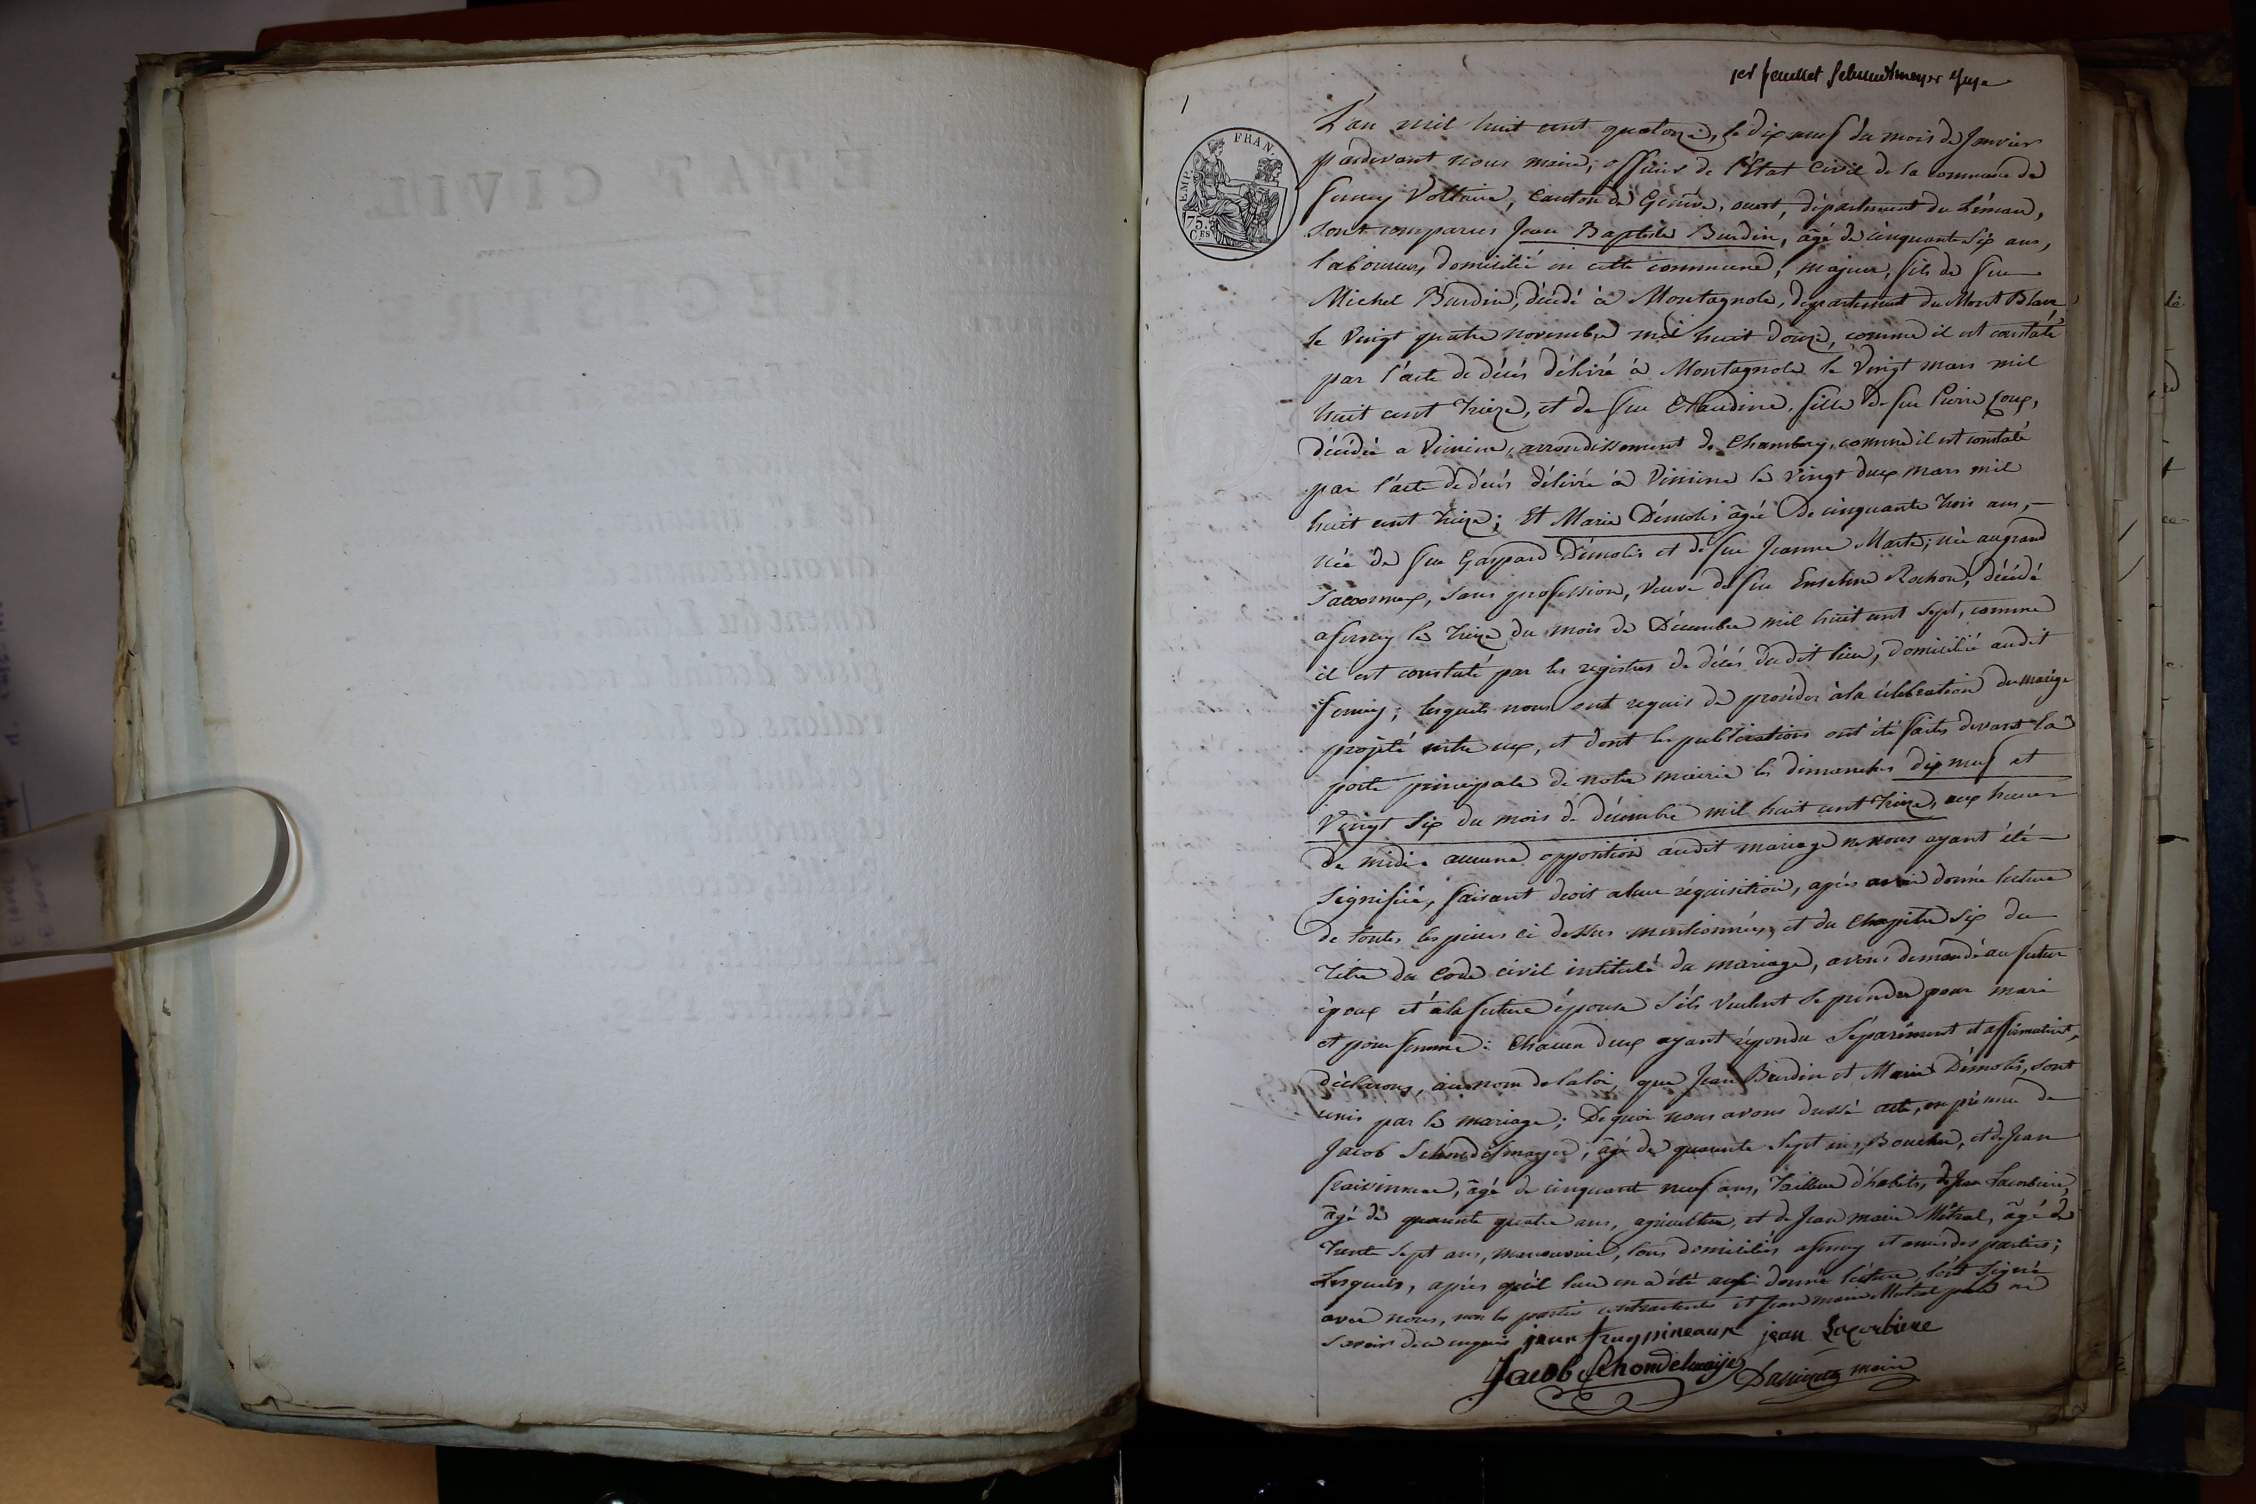 1
1er feuillet Schmidtmeyer Juge
EMP. FRAN.
75 Ces
L'an mil huit cent quatorze, le dix neuf du mois de Janvier
pardevant nous maire, officier de l'État Civil de la commune de
ferney Voltaire, Canton de Genève, ouest, département du Léman,
sont comparus Jean Baptiste Burdin, âgé de cinquante six ans,
laboureur, domicilié en cette commune, majeur, fils de feu
Michel Burdin, décédé à Montagnole, département du Mont Blanc
le Vingt quatre novembre mil huit douze, comme il est constaté
par l'acte de décès délivré à Montagnole le Vingt mars mil
huit cent treize, et de feu Claudine, fille de feu Pierre
décédée a Vimine, arrondissement de Chambery, comme il est constaté
par l'acte de décès délivré à Vimine le Vingt deux mars mil
huit cent treize; Et Marie Démolis âgée de cinquante trois ans,
née de feu Gaspard Démolis et de feu Jeanne Marte; née au grand
Saconnex, sans profession, Veuve de feu Rochon, décédé
a ferney le treize du mois de Décembre mil huit cent sept, comme
il est constaté par les registres de décès dudit lieu, domiciliée audit
ferney; lesquels nous ont requis de procéder à la célébration du mariage
projeté entre eux, et dont les publications ont été faites devant la
porte principale de notre mairie les dimanches dix neuf et
Vingt six du mois de décembre mil huit cent treize, aux heures
de midi. aucune opposition audit mariage ne nous ayant été
signifiée, faisant droit a leur réquisition, après avoir donné lecture
de toutes les pièces ci dessus mentionnées, et du Chapitre six du
titre du Code civil intitulé du mariage, avons demandé au futur
époux et à la future épouse s'ils veulent se prendre pour mari
et pour femme: Chacun deux ayant répondu séparément et affirmativt,
déclarons, au nom de la loi, que Jean Burdin et Marie Démolis, sont
unis par le mariage; De quoi nous avons dressé acte, en présence de
Jacob âgé de quarante sept ans, Boucher, et de Jean
âgé de cinquante neuf ans, tailleur d'habits, de Jean Lacorbiere,
âgé de quarante quatre ans, agriculteur, et de Jean marie Métral, âgé de
trente sept ans, manouvrier, tous domiciliés a ferney et amis des parties;
Lesquels, après qu'il leur en a été aussi donné lecture, l'ont signé
avec nous, non les parties contractantes et Jean marie Métral pour ne
savoir de ce enquis jean jean Lacorbiere
Jacob maire